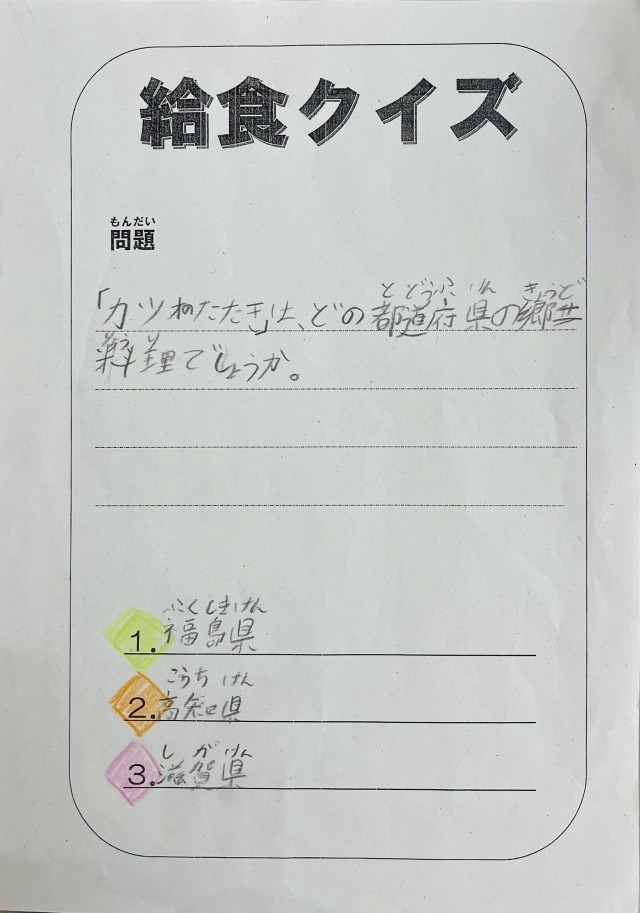 給食クイズ
もんだい
問題
とどうふ けん きょうど
「カツオのたたき」は、どの都道府県の郷土
りょうり
料理でしょうか。
ふくしまけん
1. 福島県
こうちけん
2. 高知県
しがけん
3. 滋賀県